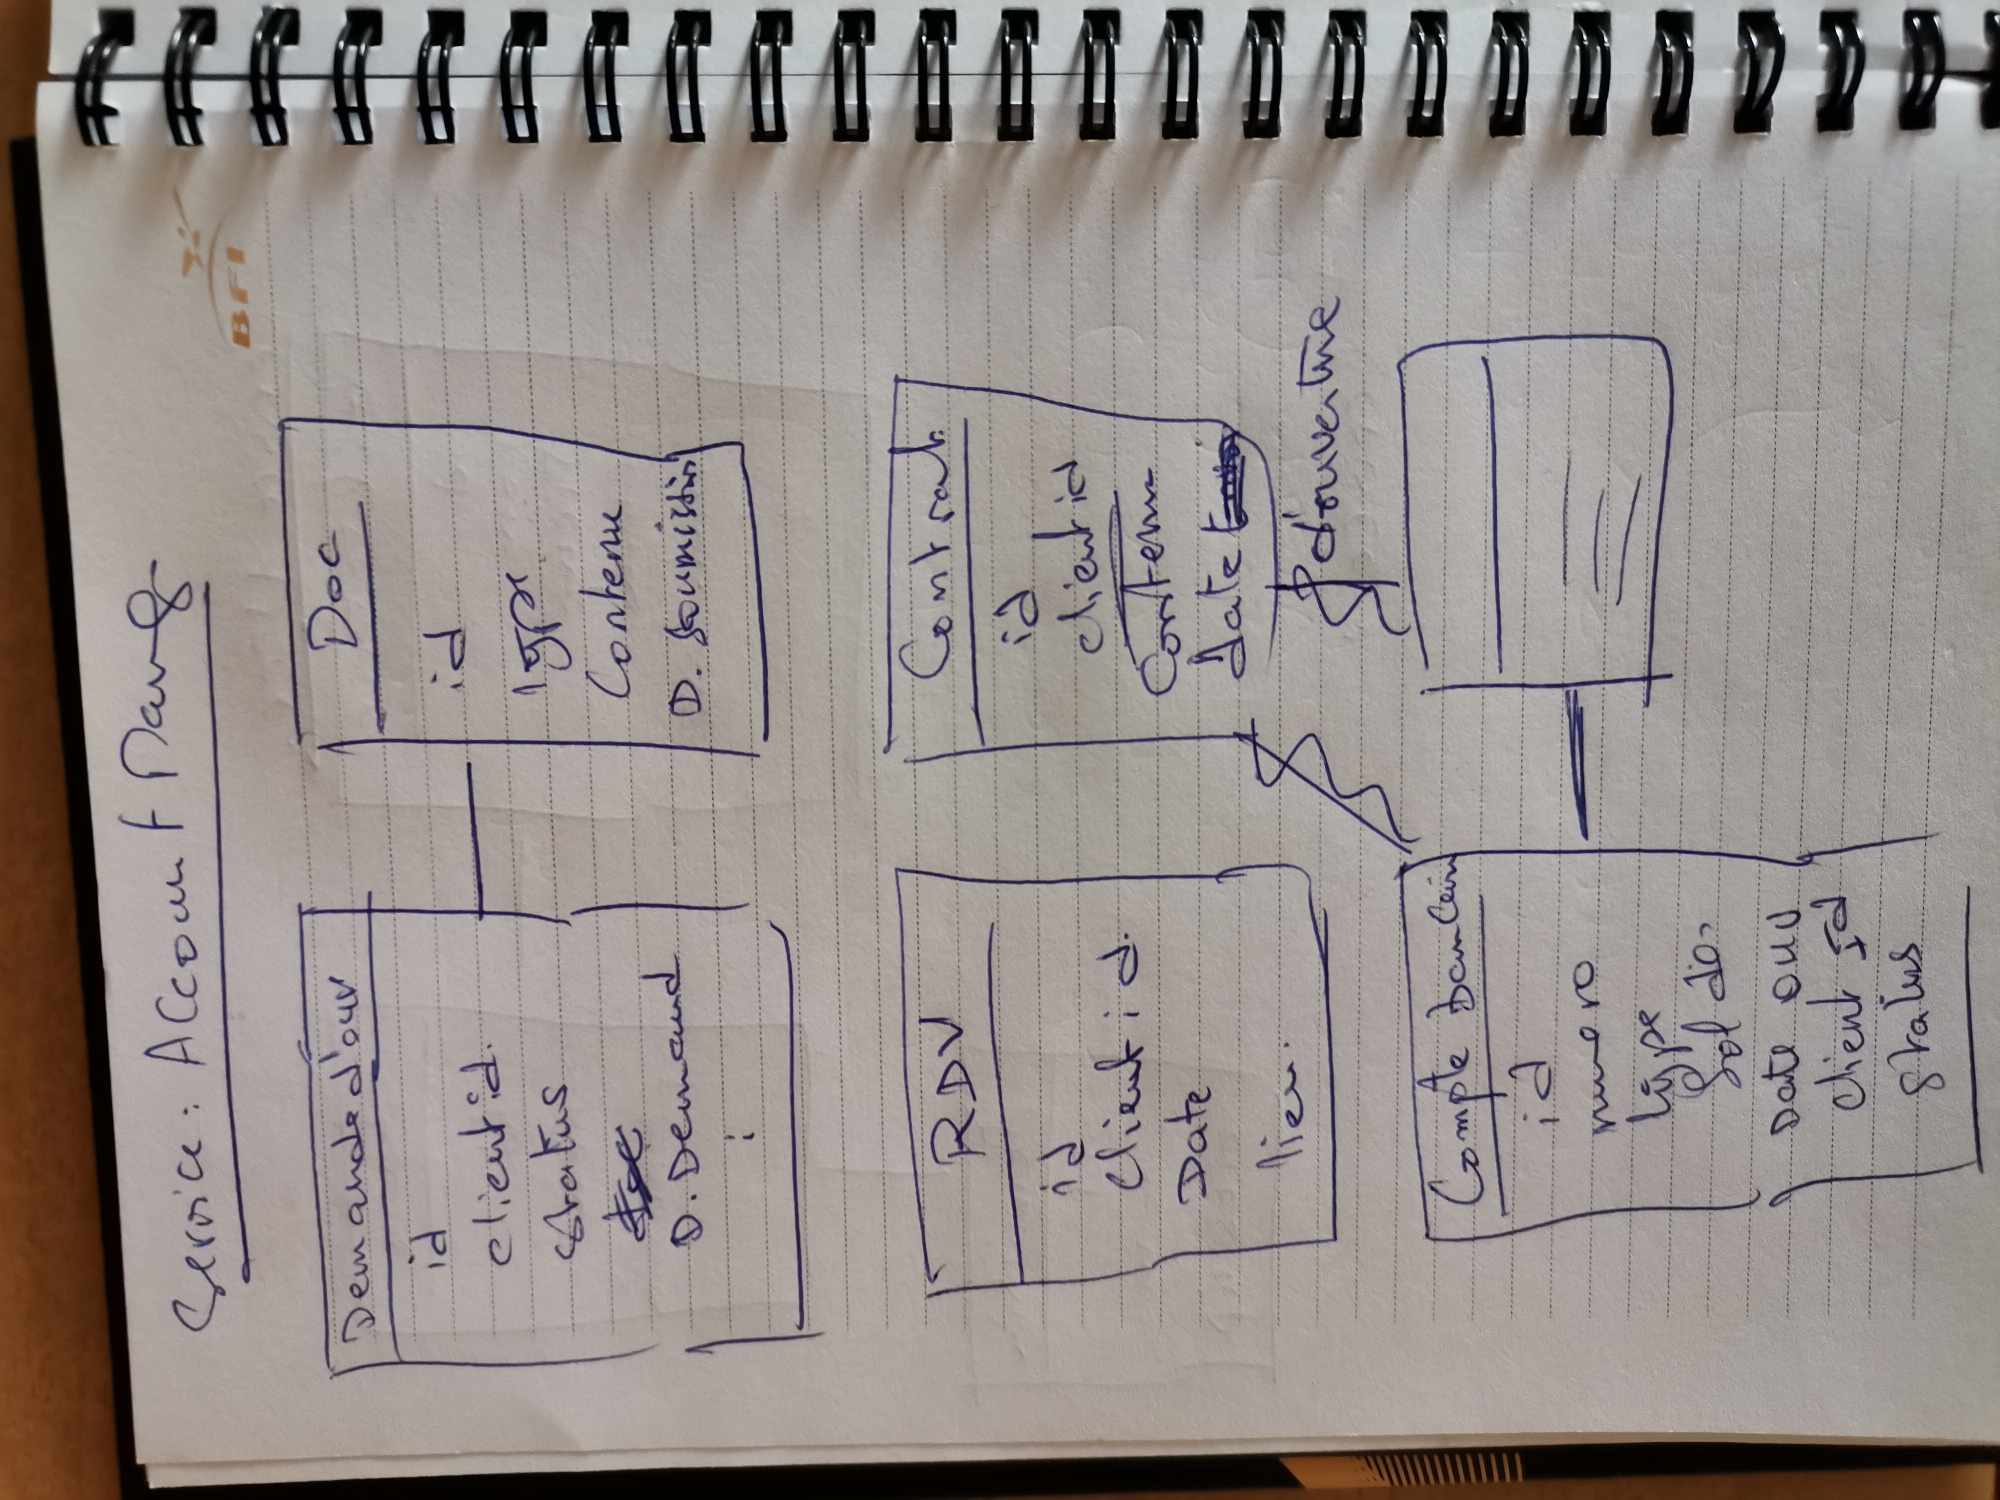 Service : Account Mang
BFI
Demande d'ouv
id
client id.
status
D. Demand
:
Doc
id
type
Contenu
D. Soumission
RDV
id
Client id.
Date
lieu.
Contrat
id
client id
Contenu
date
d'ouverture
Compte bancair
id
numero
type
Solde
Date ouv
client Id
status